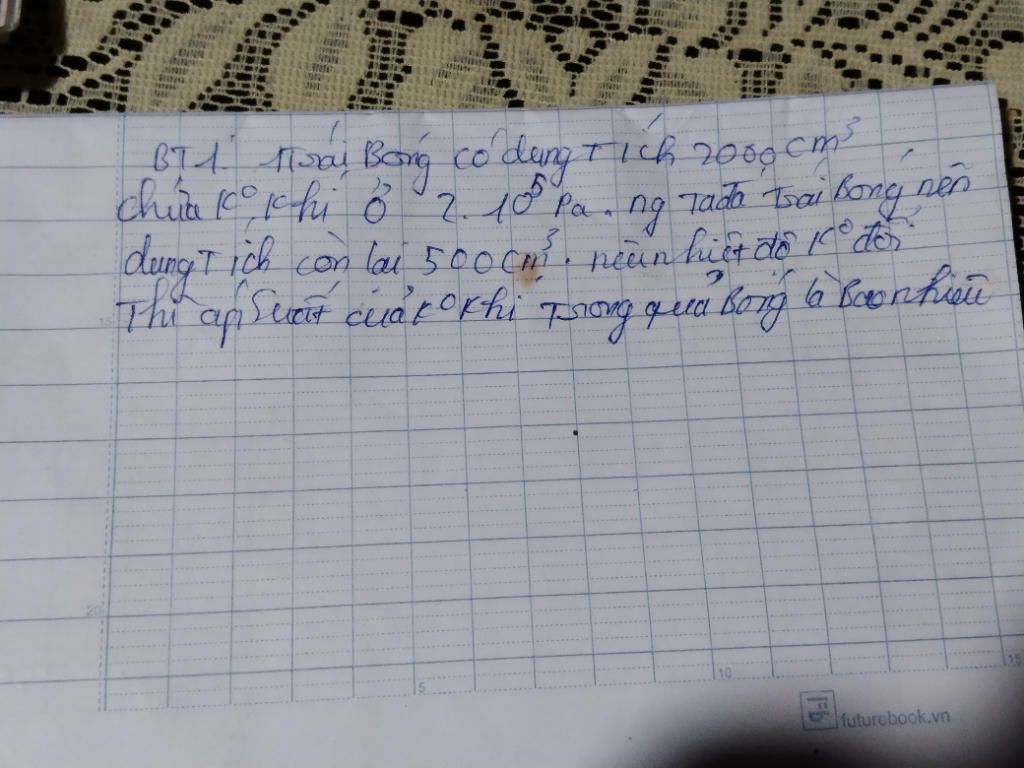 BT1. 1 trái Bóng có dung Tích 2000 cm³
chứa K° Khí ở 2.10⁵ Pa. ng Ta đá Trái Bóng nên
dung Tích còn lại 500 cm³. nếu nhiệt độ K° đổi
Thì áp Suất của K° Khí Trong quả Bóng là Bao nhiêu
15
20
5
10
15
futurebook.vn